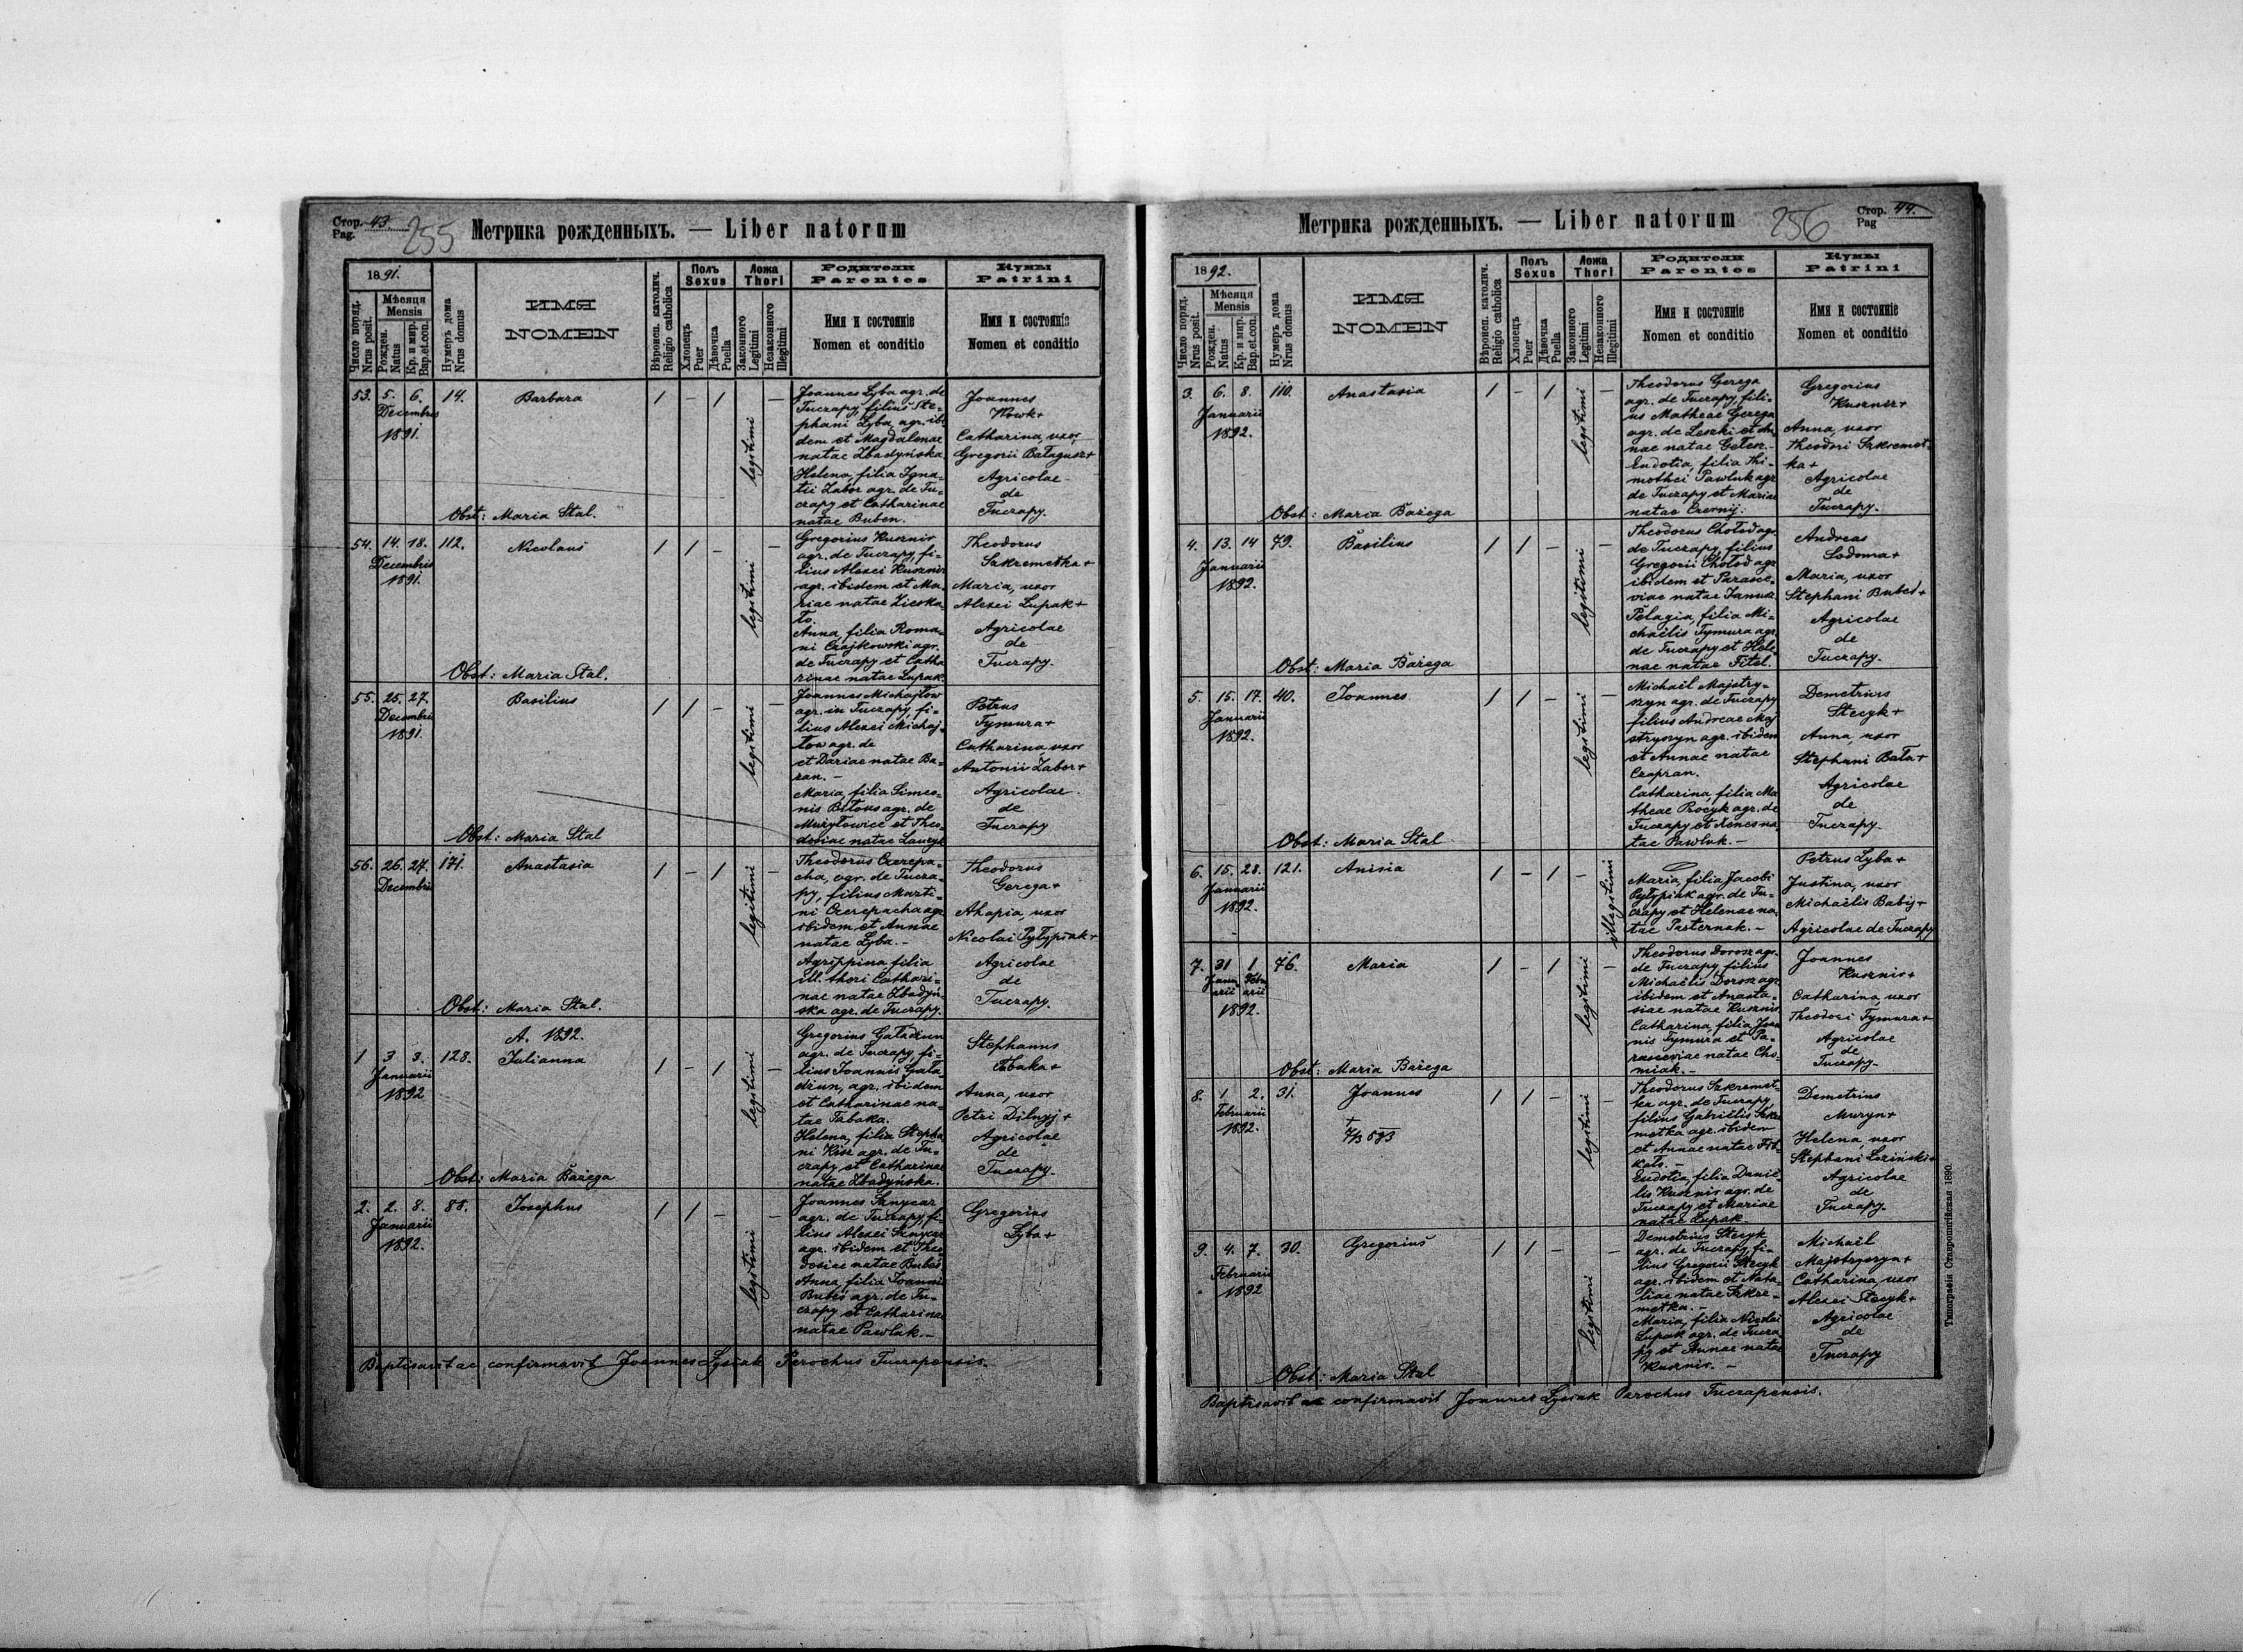 Стор. 43.
Pag.
255
Метрика рожденныхъ. — Liber natorum
1891.
Число поряд.
Nrus posit.
Мѣсяця
Mensis
Рожден.
Natus
Кр. и мир.
Bap.et.con.
Нумеръ дома
Nrus domus
ИМЯ
NOMEN
Вѣроисп. католич.
Religio catholica
Полъ
Sexus
Хлопецъ
Puer
Дѣвочка
Puella
Ложа
Thori
Законного
Legitimi
Незаконного
Illegitimi
Родители
Parentes
Имя и состоянiе
Nomen et conditio
Кумы
Patrini
Имя и состоянiе
Nomen et conditio
53. 5. 6. 14. Barbara / – / legitimi –
Decembris
1891.
Joannes Lyba agr. de
Tuczapy, filius Ste-
phani Lyba, agr. ibi
dem et Magdalenae
natae Zbadyńska.
Helena, filia Igna-
tii Zabor agr. de Tu-
czapy et Catharinae
natae Buben.
Joannes
Wowk+
Catharina, uxor
Gregorii Bałagusz+
Agricolae
de
Tuczapy.
Obst: Maria Stal.
54. 14. 18. 112. Nicolaus / / – legitimi –
Decembris
1891.
Gregorius Kusznir
agr. de Tuczapy, fi-
lius Alexei Kusznir
agr. ibidem et Ma-
riae natae Zieska-
to.
Anna, filia Roma-
ni Czajkowski agr.
de Tuczapy et Catha
rinae natae Łupak.
Theodorus
Szkremetka+
Maria, uxor
Alexei Łupak+
Agricolae
de
Tuczapy.
Obst: Maria Stal.
55. 25. 27. Basilius / / – legitimi –
Decembris
1891.
Joannes Michajłow
agr. in Tuczapy, fi-
lius Alexei Michaj-
łow agr. de
et Dariae natae Ba-
ran. –
Maria, filia Simeo-
nis Biłous agr. de
Mużyłowice et Theo-
dosiae natae
Petrus
Tymura+
Catharina uxor
Antonii Zabor+
Agricolae
de
Tuczapy
Obst: Maria Stal
56. 26. 27. 171. Anastasia / – / legitimi –
Decembris
Theodorus Czerepa-
cha, agr. de Tucza-
py, filius Marti-
ni Czerepacha agr.
ibidem et Annae
natae Lyba. –
Agrippina filia
ill. thori Cathari-
nae natae Zbadyń-
ska agr. de Tuczapy.
Theodorus
Gerega+
Ahapia, uxor
Nicolai Pyłypiak+
Agricolae
de
Tuczapy.
Obst: Maria Stal.
A. 1892.
1 3 3. 128. Julianna / – / legitimi –
Januarii
1892
Gregorius Gaładzun
agr. de Tuczapy, fi-
lius Joannis Gała-
dzun, agr. ibidem
et Catharinae na-
tae Tabaka.
Helena, filia Stepha
ni Kisz agr. de Tu-
czapy et Catharinae
natae Zbadyńska.
Stephanus
Tabaka+
Anna, uxor
Petri Dilnyj+
Agricolae
de
Tuczapy.
Obst: Maria Bażega
2. 2. 8. 88. Josephus / / – legitimi –
Januarii
1892.
Joannes Sznycar
agr. de Tuczapy, fi-
lius Alexei Sznycar
agr. ibidem et Theo-
dosiae natae Bubeś.
Anna, filia Joannis
Bubeś agr. de Tu-
czapy et Catharinae
natae Pawluk. –
Gregorius
Lyba+
Baptisavit ac confirmavit Joannes Łysiak Parochus Tuczapensis.
Метрика рожденныхъ. — Liber natorum
256
Стор. 44.
Pag
1892.
Число поряд.
Nrus posit.
Мѣсяця
Mensis
Рожден.
Natus
Кр. и мир.
Bap.et.con.
Нумеръ дома
Nrus domus
ИМЯ
NOMEN
Вѣроисп. католич.
Religio catholica
Полъ
Sexus
Хлопецъ
Puer
Дѣвочка
Puella
Ложа
Thori
Законного
Legitimi
Незаконного
Illegitimi
Родители
Parentes
Имя и состоянiе
Nomen et conditio
Кумы
Patrini
Имя и состоянiе
Nomen et conditio
3. 6. 8. 110. Anastasia / – / legitimi –
Januarii
1892.
Theodorus Gerega
agr. de Tuczapy, fili-
us Matheae Gerega
agr. de Leszki et An
nae natae Gełesz. –
Eudotia, filia Thi-
mothei Pawluk agr.
de Tuczapy et Mariae
natae Czernij.
Gregorius
Kusznir+
Anna, uxor
Theodori Szkremet-
ka+
Agricolae
de
Tuczapy.
Obst: Maria Bażega
4. 13. 14 79. Basilius / / – legitimi –
Januarii
1892.
Theodorus Chołod agr.
de Tuczapy, filius
Gregorii Chołod agr.
ibidem et Parasce-
viae natae Janusz.
Pelagia, filia Mi-
chaëlis Tymura agr.
de Tuczapy et Hele-
nae natae Fitel.
Andreas
Sodoma+
Maria, uxor
Stephani Bubeś+
Agricolae
de
Tuczapy.
Obst: Maria Bażega
5. 15. 17. 40. Joannes / / – legitimi –
Januarii
1892.
Michaël Majstry-
szyn agr. de Tuczapy
filius Andreae Maj
stryszyn agr. ibidem
et Annae natae
Czapran.
Catharina, filia Ma
theae Procyk agr. de
Tuczapy et Xenes na
tae Pawluk. –
Demetrius
Stecyk+
Anna, uxor
Stephani Bała+
Agricolae
de
Tuczapy.
Obst: Maria Stal
6. 15. 28. 121. Anisia / – / – illegitimi
Januarii
1892.
Maria, filia Jacobi
Pyłypiak agr. de Tu-
czapy et Helenae na-
tae Pasternak. –
Petrus Lyba+
Justina, uxor
Michaëlis Babij+
Agricolae de Tuczapy
7. 31 1. 76. Maria / – / legitimi –
Janu Febru
arii arii
1892.
Theodorus Dorosz agr.
de Tuczapy, filius
Michaëlis Dorosz agr.
ibidem et Anasta-
siae natae Kusznir.
Catharina, filia Joan
nis Tymura et Pa-
rasceviae natae Cho-
miak. –
Joannes
Kusznir+
Catharina, uxor
Theodosi Tymura+
Agricolae
de
Tuczapy.
Obst: Maria Bażega
8. 1 2. 31. Joannes / / – legitimi –
Februarii
1892.
+
Theodorus Szkremet-
ka agr. de Tuczapy,
filius Gabriëlis Szkre
metka agr. ibidem
et Annae natae
Eudotia, filia Danië-
lis Kusznir agr. de
Tuczapy et Mariae
natae Łupak.
Demetrius
Muryn+
Helena, uxor
Stephani Łoziński+
Agricolae
de
Tuczapy.
9. 4. 7. 30. Gregorius / / – legitimi –
Februarii
1892
Demetrius Stecyk
agr. de Tuczapy, fi-
lius Gregorii Stecyk
agr. ibidem et Nata-
liae natae Szkre-
metka. –
Maria, filia Nicolai
Łupak agr. de Tucza
py et Annae natae
Kusznir. –
Michaël
Majstryszyn+
Catharina, uxor
Alexei Stecyk+
Agricolae
de
Tuczapy
Obst: Maria Stal
Baptisavit ac confirmavit Joannes Łysiak Parochus Tuczapensis.
Типографія Ставропигійская 1890.